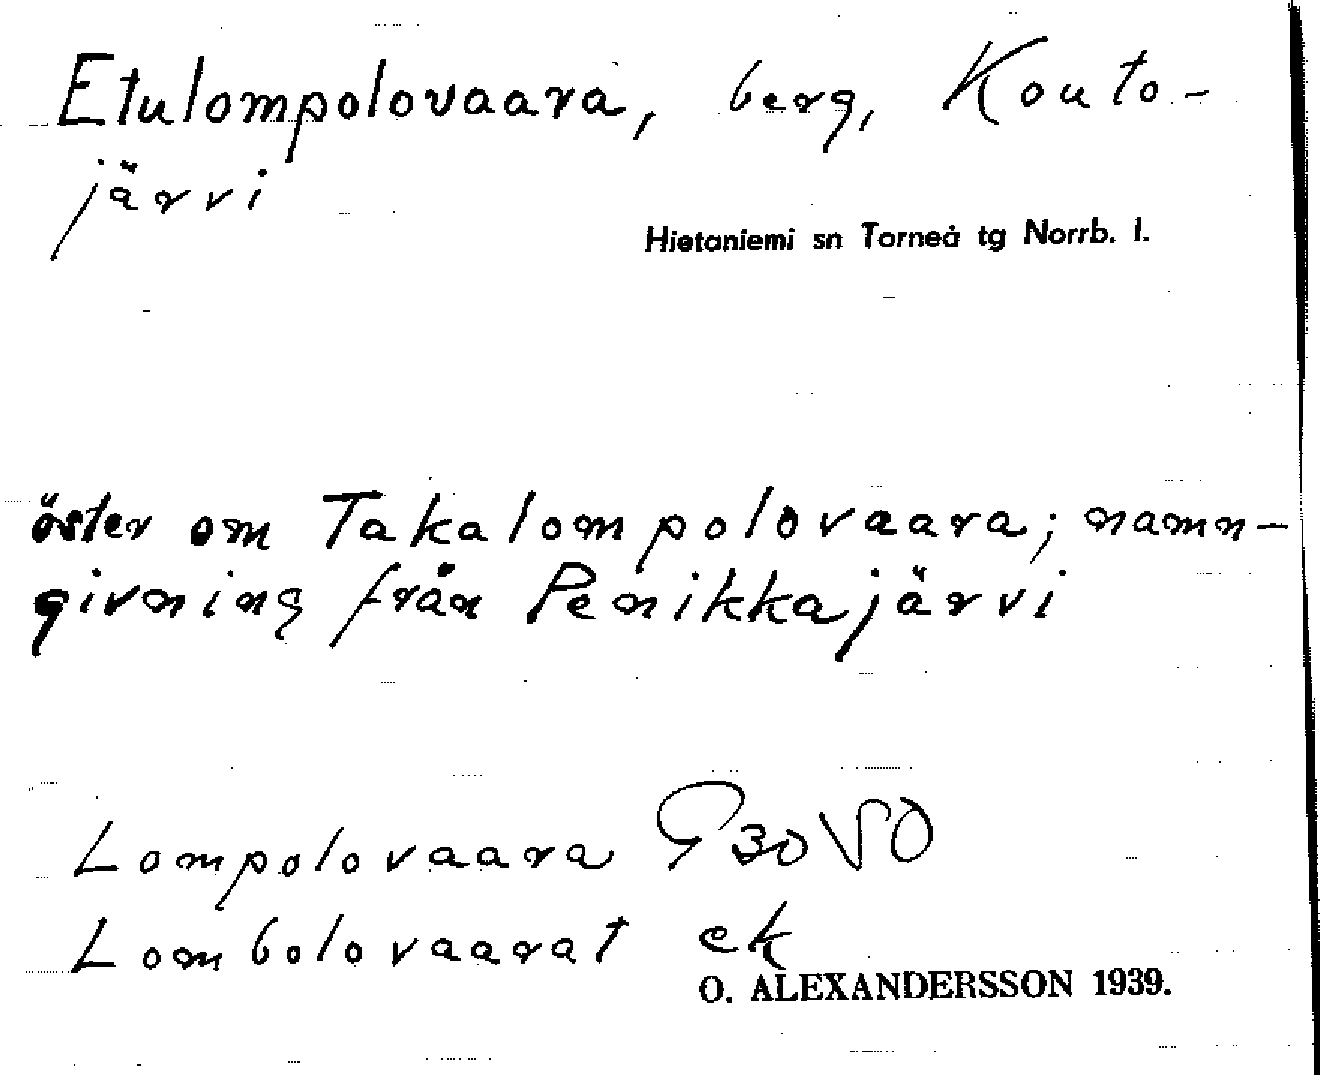 Etulompolovaara, berg, Kouto-
järvi
Hietaniemi sn Torneå tg Norrb. l.
öster om Takalompolovaara; namn-
givning från Penikkajärvi
Lompolovaara G30VSO
Lombolovaarat ek
O. ALEXANDERSSON 1939.